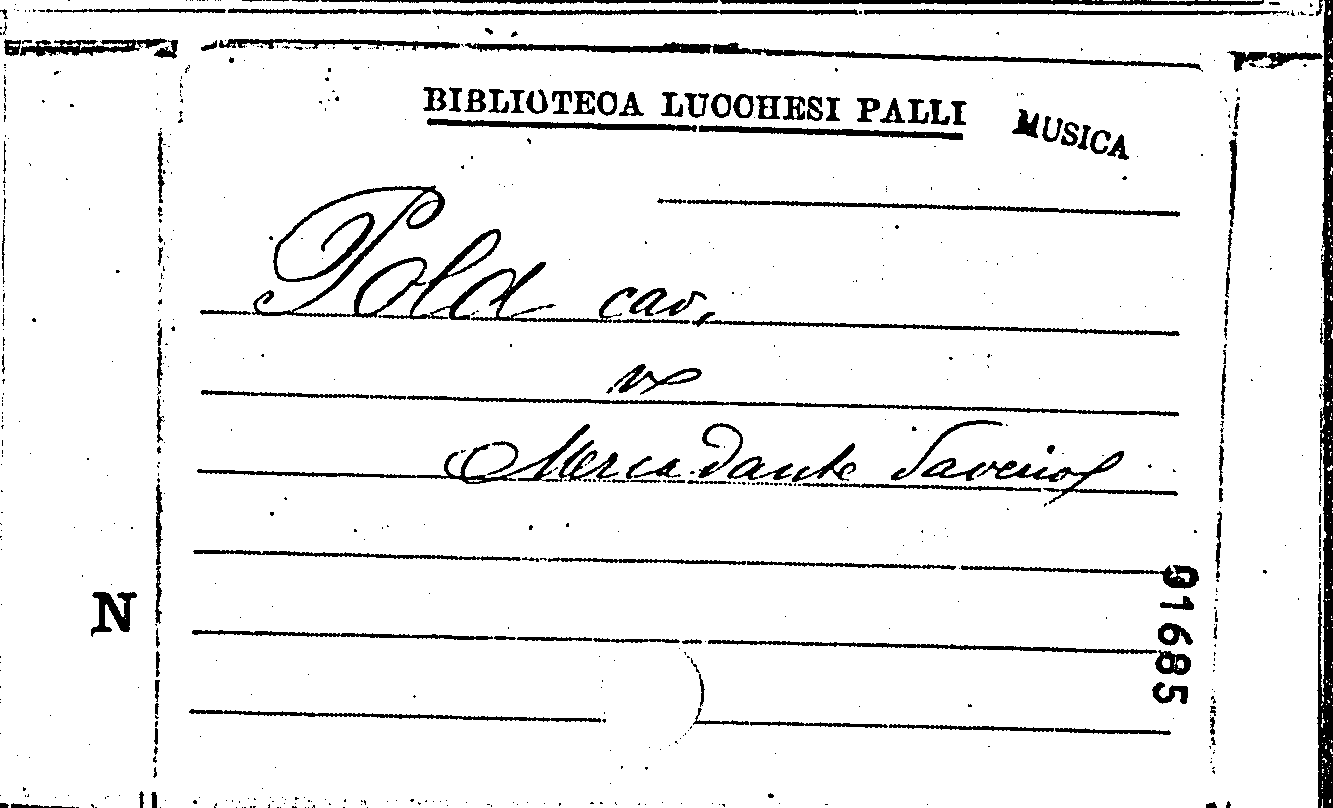 BIBLIOTECA LUCCHESI PALLI
MUSICA
Pold cav.
v
Mercadante Saverio
N
01685